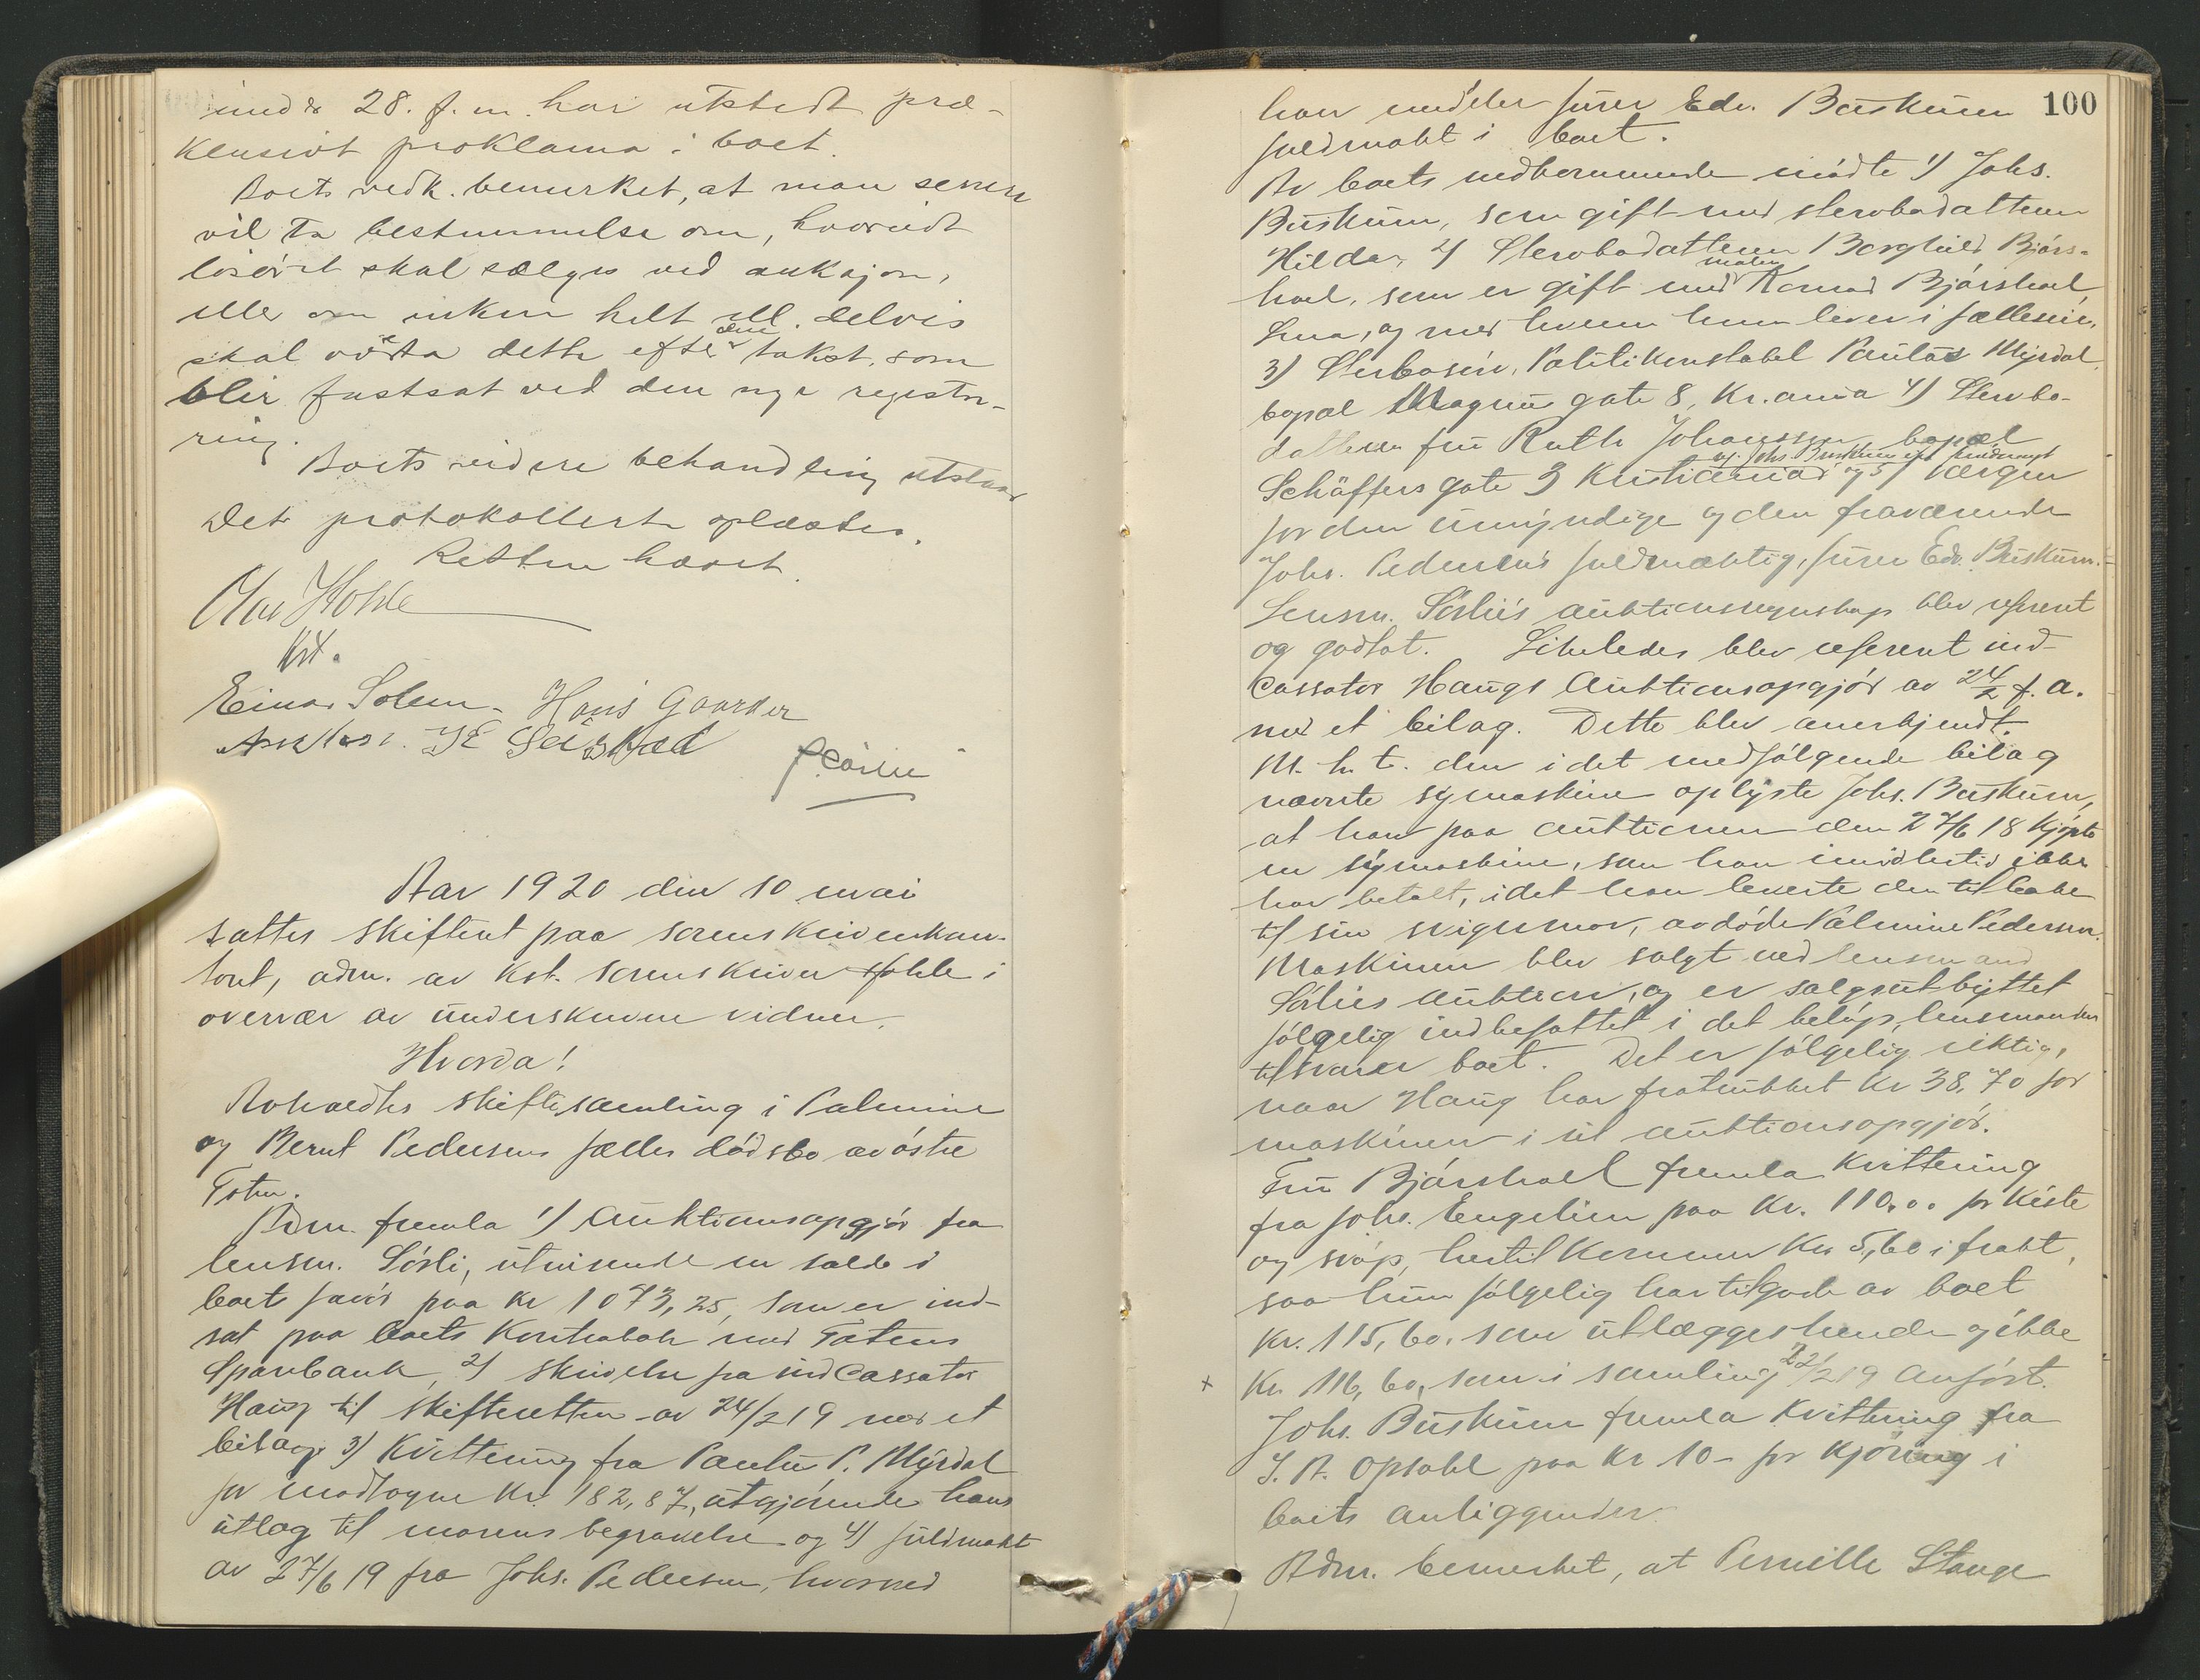 under 28. f. m. har utstedt præ-
klusivt proklama i boet.
Boets vedk. bemerket, at man senere
vil ta bestemmelse om, hvorvidt
løsøret skal sælges ved auksjon,
eller om enken helt ell. delvis
skal overta dette efter den takst, som
blir fastsat ved den nye registre-
ring.
Boets videre behandling utstaar
Det protokollerte oplæstes.
Retten hævet.
Olav Hohle
kst.
Einar Solem. Hans Gaarder
Sørlie
Aar 1920 den 10 mai
sattes skifteret paa sorenskriverkon-
toret, adm. av kst. sorenskriver Hohle i
overvær av underskrevne vidner.
Hvorda!
Avholdtes skiftesamling i Palmine
og Bernt Pedersens fælles dødsbo av østre
Toten.
Adm. fremla 1) Auktionsopgjør fra
lensm. Sørli, utvisende en saldo i
boets favør paa kr 1073,25, som er ind-
sat paa boets kontrabok med Totens
Sparebank, 2) skrivelse fra indcassator
Haug til skifteretten av 24/2 19 med et
bilag, 3) Kvittering fra Paulus P. Myrdal
for modtagne kr. 182,87, utgjørende hans
utlæg til morens begravelse og 4) fuldmakt
av 27/6 19 fra Johs. Pedersen, hvorved
100
han meddeler furer Edv. Buskum
fuldmakt i boet.
Av boets vedkommende mødte 1) Johs.
Buskum, som gift med stervbodatteren
Hilda, 2) Stervbodatteren Borghild Bjørs-
hoel, som er gift med maler Konrad Bjørshoel,
Ena, og med hvem hun lever i fælleseie,
3) Stervbosøn, Politikonstabel Paulus Myrdal,
bopæl Magnus gate 8, Kr.ania 4) Stervbo-
datteren fru Ruth Johanssen, bopæl
Schäffers gate 3 Kristiania ved Johs. Buskum og 5) værgen
for den umyndige og den fraværende
Johs. Pedersens fuldmægtig, furer Edv. Buskum.
Lensm. Sørlies auktionsregnskap blev referert
og godtat. Likeledes blev referert ind-
cassator Haugs Auktionsopgjør av 24/2 f. a.
med et bilag. Dette blev anerkjendt.
M. h. t. den i det medfølgende bilag
nævnte symaskine oplyste Johs. Buskum,
at han paa auktionen den 27/6 18 kjøpte
en symaskine, som han imidlertid ikke
har betalt, idet han leverte den tilbake
til sin svigermor, avdøde Palmine Pedersen.
Maskinen blev solgt ved lensmand
Sørlies auktion, og er salgsutbyttet
følgelig indbefattet i det beløp, lensmanden
tilsvarer boet. Det er følgelig riktig,
naar Haug har fratrukket kr 38,70 for
maskinen i sit auktionsopgjør.
Fru Bjørshoel fremla kvittering
fra Johs. Engelien paa kr. 110.00 for kiste
og svøp, hertil kommer kr 5,60 i frakt,
saa hun følgelig har tilgode av boet
kr. 115,60. som utlægges hende og ikke
x kr. 116,60, som i samling 22/2 19 anført.
Johs. Buskum fremla kvittering fra
J. A. Opsahl paa kr 10- for kjøring i
boets anliggender.
Adm. bemerket, at Pernille Stange